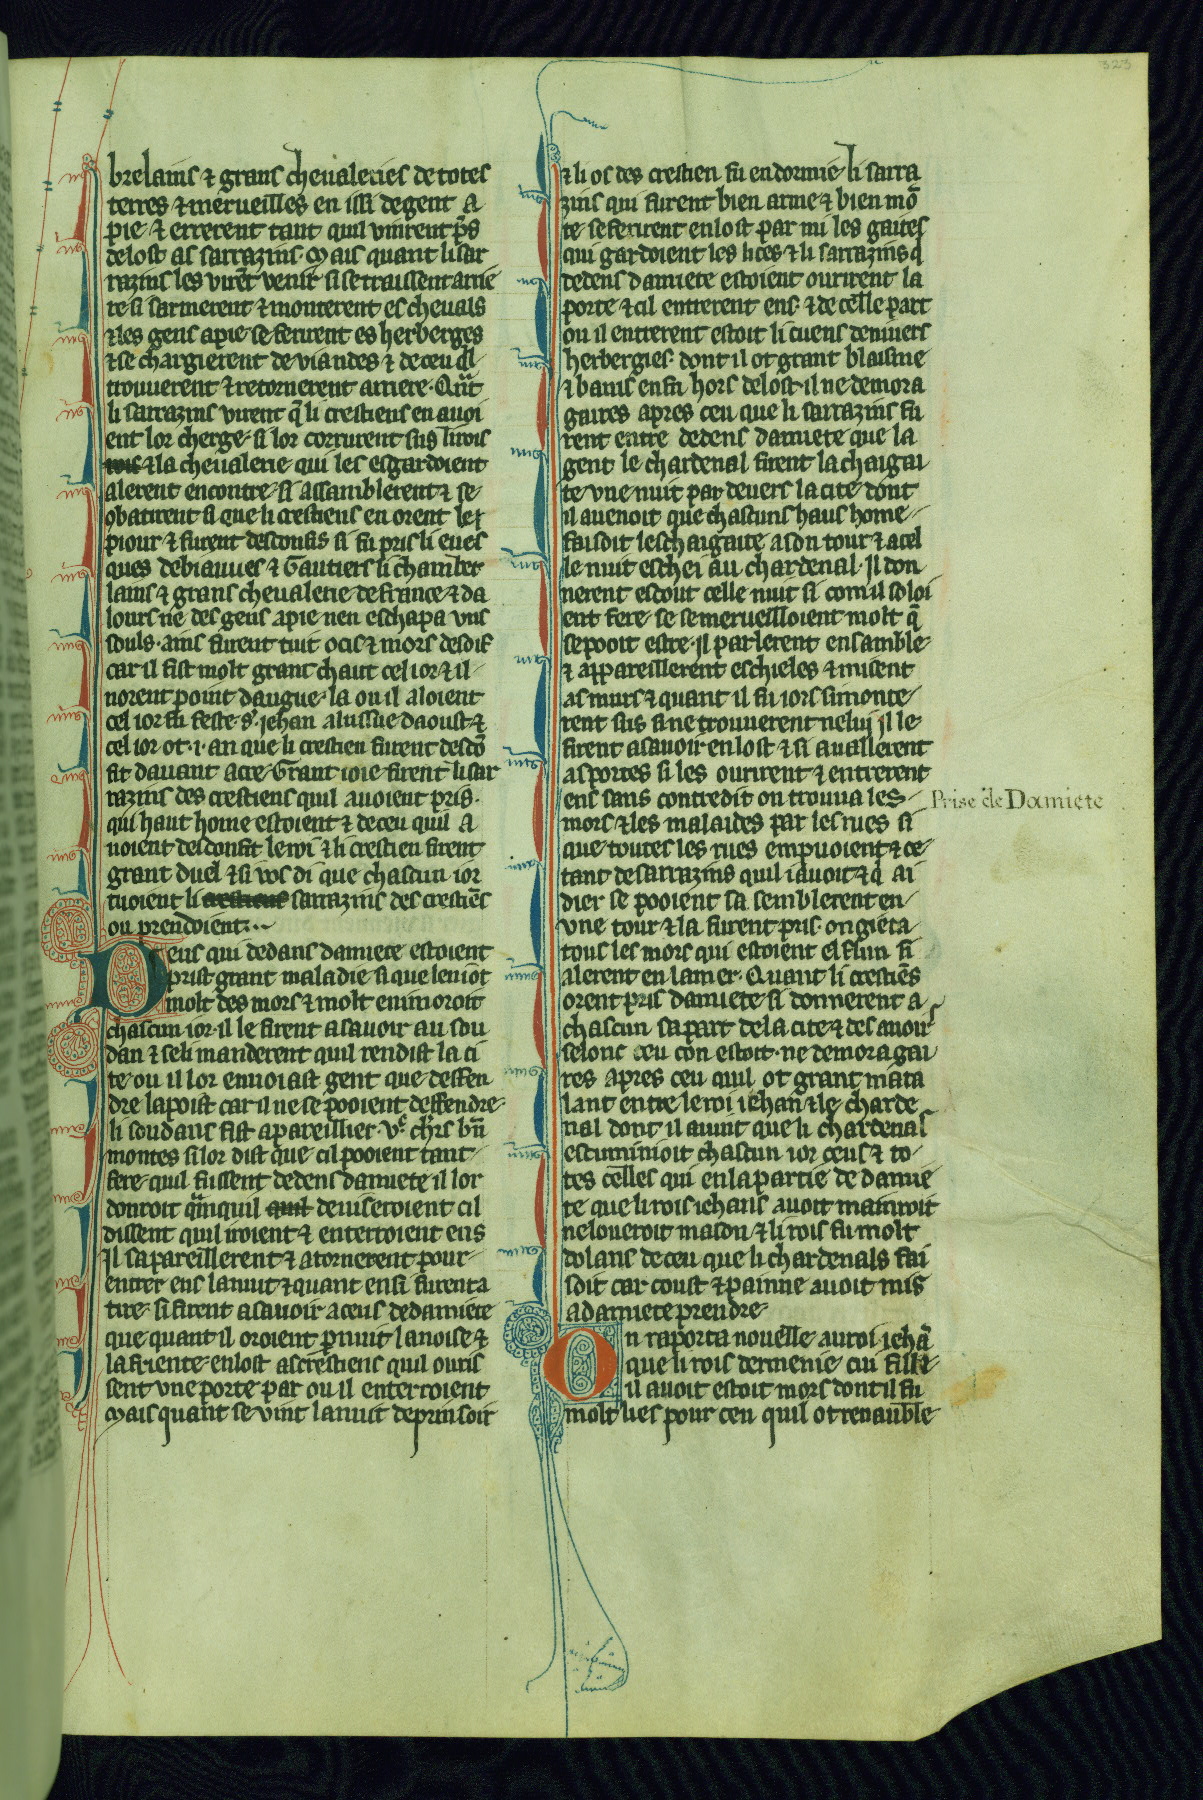 323
brelains & grans cheualeries de totes
terres & merueilles en issi de gent a
pie & errerent tant quil vinrent p̄s
delost as sarrazins. Mais quant li sar
razins les virēt venir si se traissent arrie
re si sarmerent & monterent es cheuals
& les gens apie se ferirent es herberges
& se chargierent de viandes & de ceu q̄l
trouuerent & retornerent arriere. Qn̄t
li sarrazins virent q̄ li crestiens en auoi
ent lor cherge si lor corrurent sus li rois
rois & la cheualerie qui les esgardoient
alerent encontre si assamblerent & se
9batirent si que li crestiens en orent le
piour & furent desconfis si fu pris li eues
ques debiauues & Gautiers li chamber
lains & grans cheualerie de france & da
lours ne des gens apie nen eschapa vns
souls. ains furent tuit ocis & mors de soif
car il fist molt grant chaut cel ior & il
norent point daugue la ou il aloient
cel ior fu feste s. iehan alussue daoust &
cel ior ot .i. an que li crestien furent descō
fit dauant acre. Grant ioie firent li sar
razins des crestiens quil auoient pris.
qui haut home estoient & de ceu quil a
uoient desconfit le roi & li crestien firent
grant duel & si vos di que chascun ior
tuoient li crestiens sarrazins des crestiēs
ou prendoient.
Ceus qui dedans damiete estoient
prist grant maladie si que len i ot
molt des mors & molt en i moroit
chascun ior. il le firent asauoir au sou
dan & seli manderent quil rendist la ci
te ou il lor enuoiast gent que deffen
dre lapoist car il ne se pooient deffendre
li soudans fist apareillier .vc. chrs bn̄
montes si lor dist que cil pooient tant
fere quil fussent dedens damiete il lor
donroit q̄nquil quil deuiseroient cil
dissent quil iroient & enterroient ens
Il sapareillerent & atornerent pour
entrer ens la nuit & quant ensi furent a
tire si firent asauoir a ceus de damiete
que quant il oroient p nuit la noise &
la friente enlost as crestiens quil ouris
sent vne porte par ou il enterroient
Mais quant se vint la nuit de prinsoir
& li os des crestien fu endormie li sarra
zins qui furent bien arme & bien mō
te se ferirent enlost par mi les gaites
qui gardoient les lices & li sarrazins q̄
dedens damiete estoient ourirent la
porte & cil entrerent ens. & de celle part
ou il entrerent estoit li cuens de niuers
herbergies. dont il ot grant blasme
& banis en fu hors delost. il ne demora
gaires apres ceu que li sarrazins fu
rent entre dedens damiete que la
gent le chardenal firent la chaigai
te vne nuit par deuers la cite dont
il auenoit que chascuns haus home
faisoit leschaigaite a son tour & a cel
le nuit eschei au chardenal. Il don
nerent escout celle nuit si com il soloi
ent fere se se merueilloient molt q̄
se pooit estre. il parlerent ensamble
& appareillerent eschieles & misent
as murs & quant il fu iors si monte
rent sus si ne trouuerent nelui il le
firent asauoir en lost & si auallerent
as portes si les ourirent & entrerent
ens sans contredit on trouua les
mors & les malaides par les rues si
que toutes les rues empuoient & ce
tant de sarrazins quil i auoit & q̄ ai
dier se pooient sa semblerent en
vne tour & la furent pris. on gieta
tous les mors qui estoient el flun si
alerent en la mer. Quant li crestiēs
orent pris damiete si donnerent a
chascun sa part de la cite & des auoirs
selonc ceu con estoit. ne demora gai
res apres ceu quil ot grant mata
lant entre le roi iehan & le charde
nal dont il auint que li chardenals
escuminioit chascun ior ceus & to
tes celles qui en la partie de damie
te que li rois iehans auoit mainroit
ne loueroit mason & li rois fu molt
dolans de ceu que li chardenals fai
soit car coust & painne auoit mis
a damiete prendre
On raporta nouelle au roi iehā
que li rois dermenie cui fille
il auoit estoit mors dont il fu
molt lies pour ceu quil ot renauble
Prise de Damiete